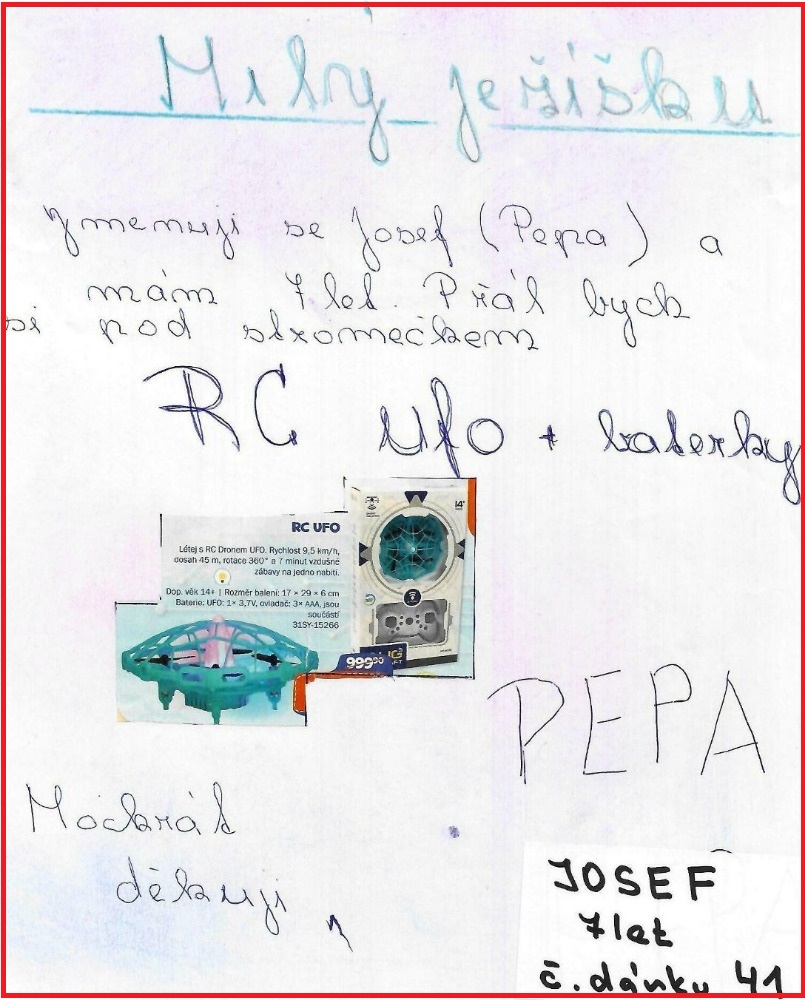 Milý ježišku
jmenuji se Josef (Pepa) a
mám 7 let. Přál bych
si pod stromečkem
RC Ufo + baterky
RC UFO
Létej s RC Dronem UFO. Rychlost 9,5 km/h,
dosah 45 m, rotace 360° a 7 minut vzdušné
zábavy na jedno nabití.
Dop. věk 14+ | Rozměr balení: 17 × 29 × 6 cm
Baterie: UFO: 1× 3,7V, ovladač: 3× AAA, jsou
součástí
31SY-15266
14+
999⁹⁰
PEPA
Mockrát
děkuji
JOSEF
7 let
č. dárku 41